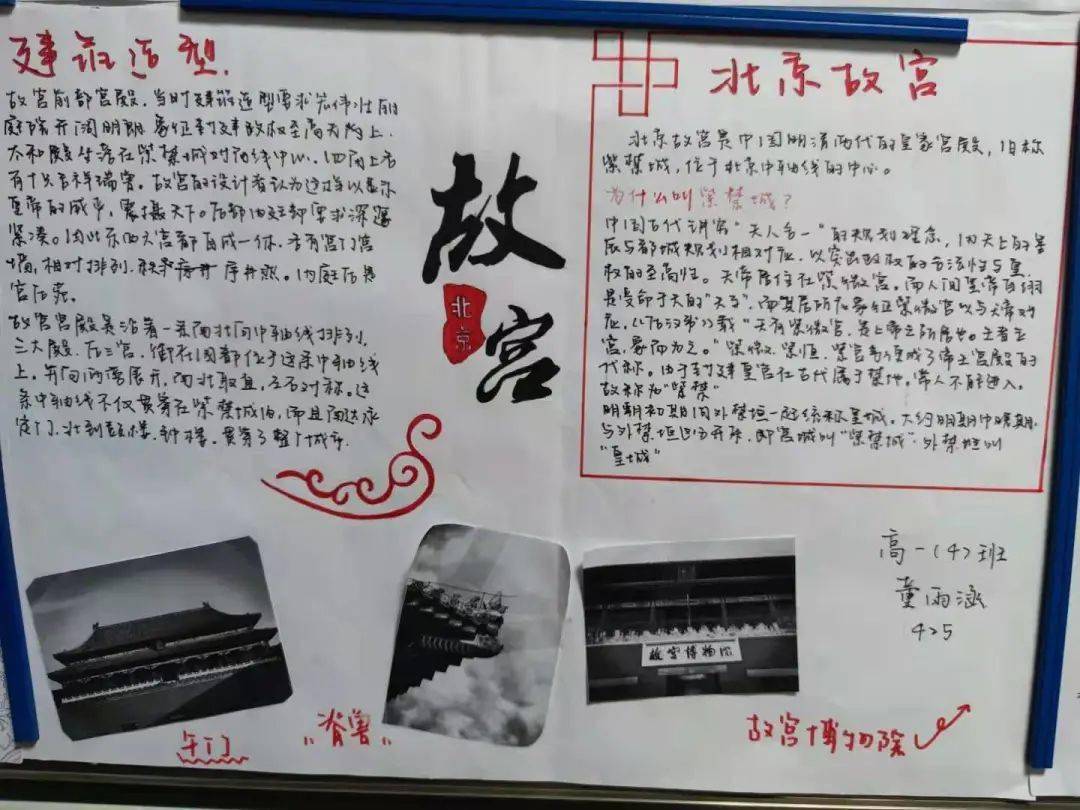 建筑造型
故宫前部宫殿,当时建筑造型要求宏伟壮丽
庭院开阔明朗,象征封建政权至高无上,
太和殿坐落在紫禁城对角线中心,四角上各
有十只吉祥瑞兽。故宫的设计者认为这样以显示
皇帝的威严,震摄天下。后部内廷却要求深邃
紧凑。因此东西六宫都自成一体,各有宫门宫
墙,相对排列,秩序井然。内庭后是
宫后苑。
故宫宫殿是沿着一条南北向中轴线排列,
三大殿、后三宫、御花园都位于这条中轴线
上,并向两旁展开,南北取直,左右对称。这
条中轴线不仅贯穿在紫禁城内,而且南达永
定门,北到鼓楼、钟楼,贯穿了整个城市
故
北京
宫
北京故宫
北京故宫是中国明清两代的皇家宫殿,旧称
紫禁城,位于北京中轴线的中心。
为什么叫紫禁城?
中国古代讲究"天人合一"的规划理念,因天上的星
辰与都城规划相对应,以突出政权的合法性与皇
权的至高性。天帝居住在紫微宫,而人间皇帝自诩
是受命于天的"天子",而其居所应象征紫微宫以与天帝对
应,《后汉书》载"天有紫微宫,是上帝之所居也。王者立
宫,象而为之。"紫微、紫垣、紫宫等便成了帝王宫殿的
代称。由于封建皇宫在古代属于禁地,常人不能进入。
故称为"紫禁"
明朝初期同外禁垣一起统称皇城,大约明朝中晚期,
与外禁垣区分开来,即宫城叫"紫禁城",外禁垣叫
"皇城"
高一(4)班
董雨涵
425
故宫博物院
午门
"脊兽"
故宫博物院